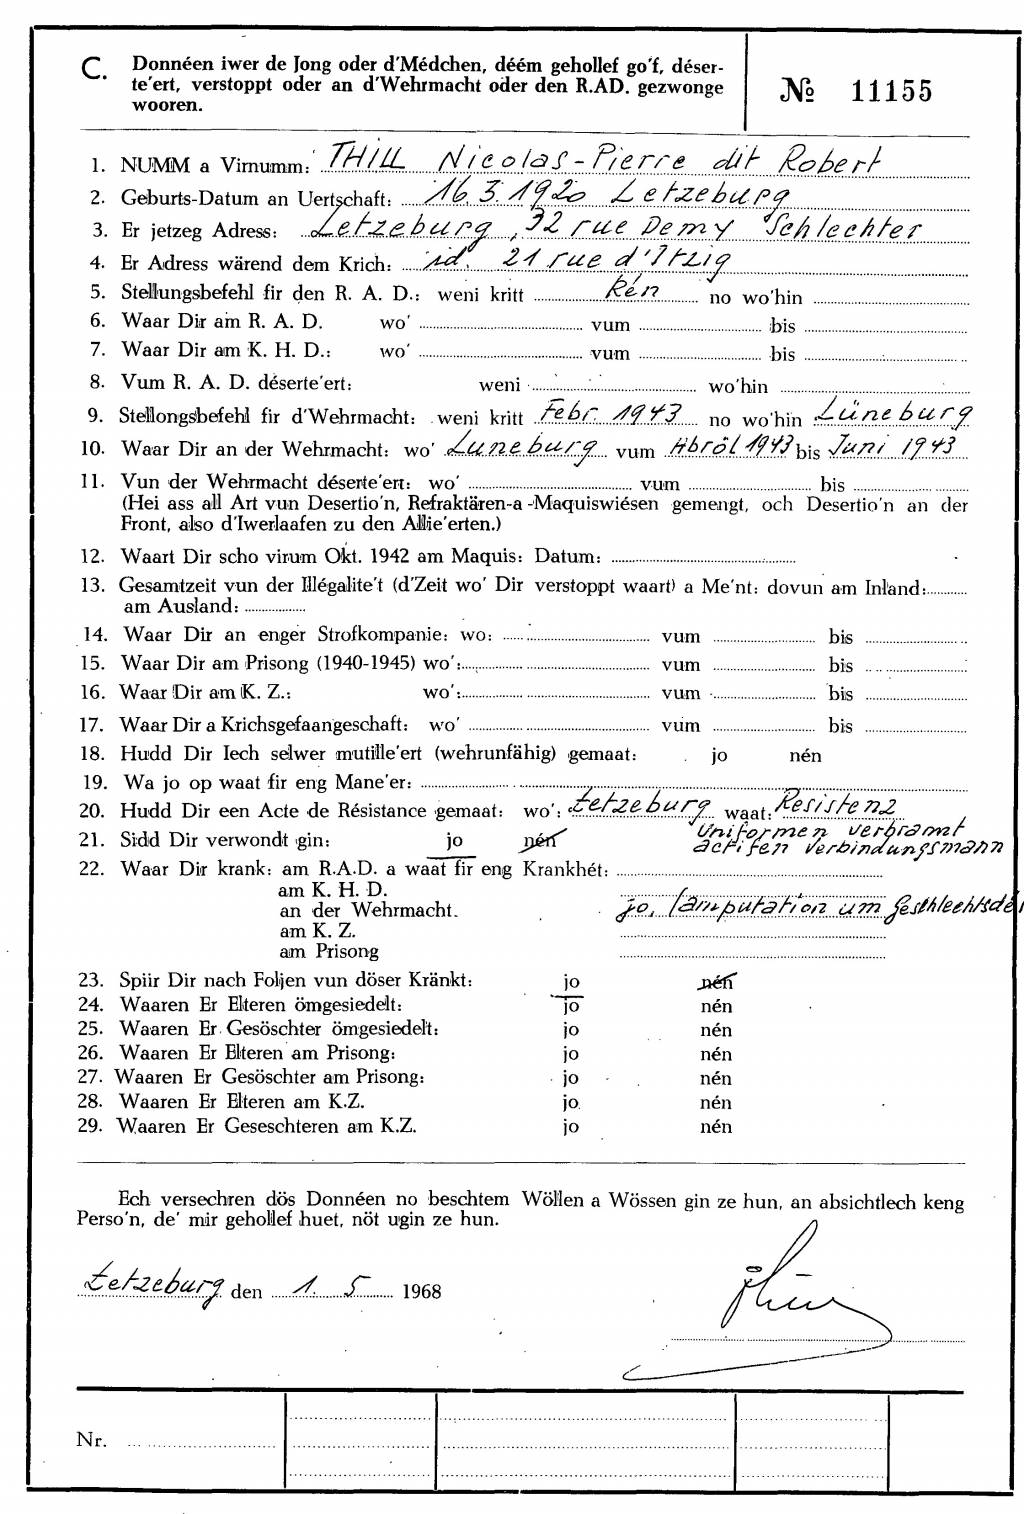 C. Donnéen iwer de Jong oder d'Médchen, déém gehollef go'f, déser-
te'ert, verstoppt oder an d'Wehrmacht oder den R.AD. gezwonge
wooren.
№ 11155
1. NUMM a Virnumm: THILL Nicolas-Pierre dit Robert
2. Geburts-Datum an Uertschaft: 16.3.1920 Letzeburg
3. Er jetzeg Adress: Letzeburg, 32 rue Demy Schlechter
4. Er Adress wärend dem Krich: id. 21 rue d'Itzig
5. Stellungsbefehl fir den R. A. D.: weni kritt Kén no wo'hin
6. Waar Dir am R. A. D. wo' vum bis
7. Waar Dir am K. H. D.: wo' vum bis
8. Vum R. A. D. déserte'ert: weni wo'hin
9. Stellongsbefehl fir d'Wehrmacht: weni kritt Febr. 1943 no wo'hin Lüneburg
10. Waar Dir an der Wehrmacht: wo' Luneburg vum Abröl 1943 bis Juni 1943
11. Vun der Wehrmacht déserte'ert: wo' vum bis
(Hei ass all Art vun Desertio'n, Refraktären-a -Maquiswiésen gemengt, och Desertio'n an der
Front, also d'Iwerlaafen zu den Allie'erten.)
12. Waart Dir scho virum Okt. 1942 am Maquis: Datum:
13. Gesamtzeit vun der Illégalite't (d'Zeit wo' Dir verstoppt waart) a Me'nt: dovun am Inland:
am Ausland:
14. Waar Dir an enger Strofkompanie: wo: vum bis
15. Waar Dir am Prisong (1940-1945) wo': vum bis
16. Waar Dir am K. Z.: wo': vum bis
17. Waar Dir a Krichsgefaangeschaft: wo' vum bis
18. Hudd Dir Iech selwer mutille'ert (wehrunfähig) gemaat: jo nén
19. Wa jo op waat fir eng Mane'er:
20. Hudd Dir een Acte de Résistance gemaat: wo': Letzeburg waat: Resistenz
Uniformen verbramt
21. Sidd Dir verwondt gin: jo nén actifen verbindungsmann
22. Waar Dir krank: am R.A.D. a waat fir eng Krankhét:
am K. H. D.
an der Wehrmacht. jo, (amputation um Geschlechtsdé
am K. Z.
am Prisong
23. Spiir Dir nach Foljen vun döser Kränkt: jo nén
24. Waaren Er Elteren ömgesiedelt: jo nén
25. Waaren Er Gesöschter ömgesiedelt: jo nén
26. Waaren Er Elteren am Prisong: jo nén
27. Waaren Er Gesöschter am Prisong: jo nén
28. Waaren Er Elteren am K.Z. jo nén
29. Waaren Er Geseschteren am K.Z. jo nén
Ech versechren dös Donnéen no beschtem Wöllen a Wössen gin ze hun, an absichtlech keng
Perso'n, de' mir gehollef huet, nöt ugin ze hun.
Letzeburg den 1. 5 1968
Nr.